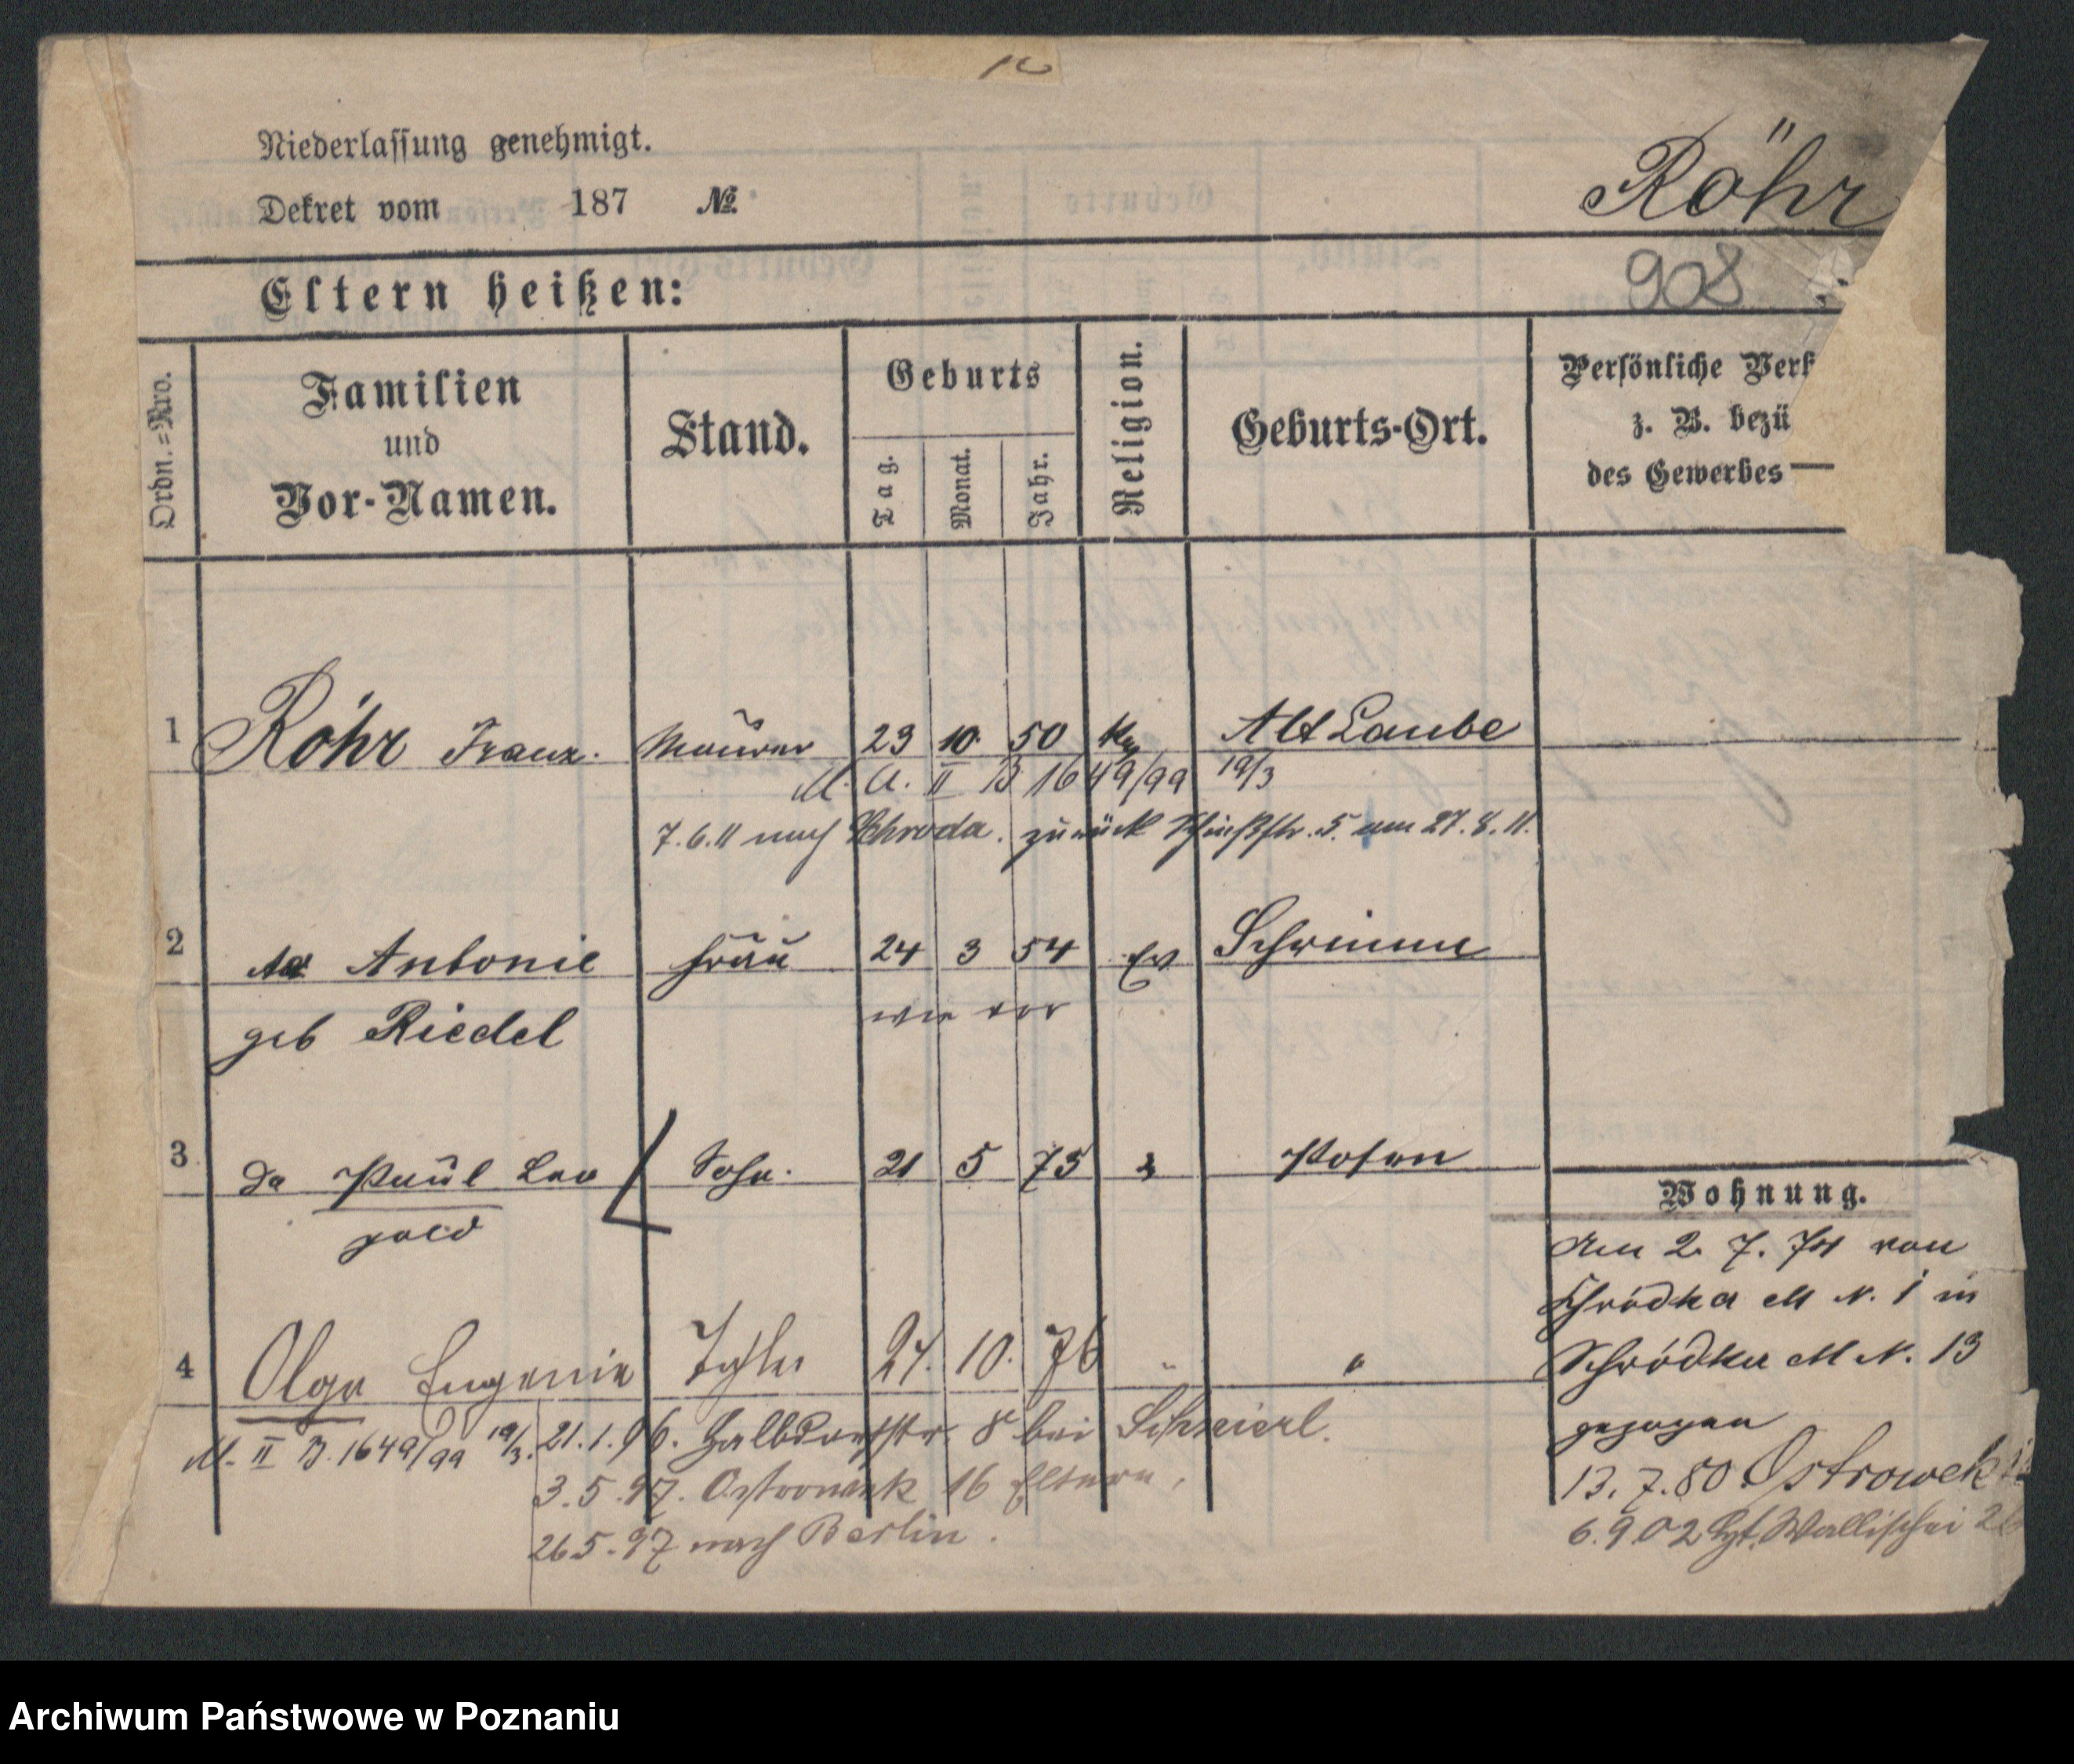 Niederlassung genehmigt.
Dekret vom 187 №
Röhr
908
Eltern heißen:
Ordn.=Nro.
Familien
und
Vor-Namen.
Stand.
Geburts
Tag.
Monat.
Jahr.
Religion.
Geburts-Ort.
Persönliche Verh
z. B. bezü
des Gewerbes
1 Röhr Franz. Maurer 23 10 50 Alt Laube
M. A. II B 1649/99 19/3
7.6.11 nach Schroda. zurück 5. am 27.8.11.
2 Antonie Frau 24 3 54 Ev Schrimm
geb Riedel
wie vor
3 do Paul Leo Sohn. 21 5 75 Posen
pold
4 Olga Eugenie Tochter 27. 10. 76 " "
M. II B. 1649/99 19/3.
21.1.96. Halbdorfstr. 8 bei
3.5.97. Ostrowek 16 Eltern,
26.5.97 nach Berlin.
Wohnung.
Am 2. 7. 74 von
Schrodka M N. 1 in
Schrodka M N. 13
gezogen
13.7.80 Ostrowek
6.9.02 Wallischei
Archiwum Państwowe w Poznaniu